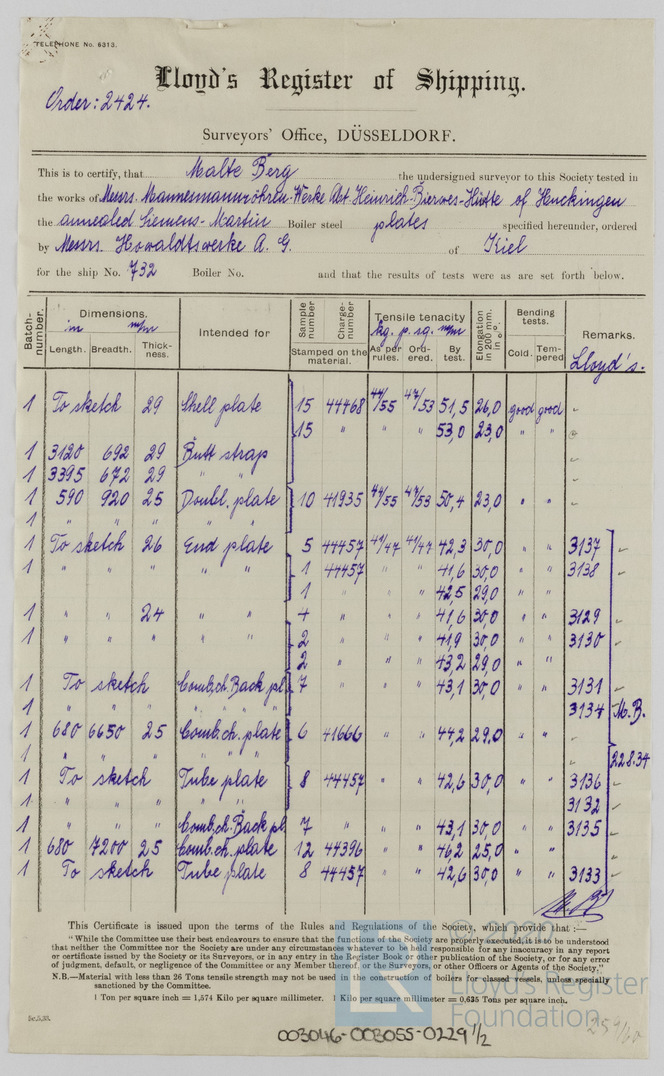 TELEPHONE No. 6313.
Lloyd's Register of Shipping.
Order: 2424.
Surveyors' Office, DÜSSELDORF.
This is to certify, that Malte Berg the undersigned surveyor to this Society tested in
the works of Messrs. Mannesmannröhren-Werke Abt. Heinrich-Bierwes-Hütte of Huckingen
the annealed Siemens-Martin Boiler steel plates specified hereunder, ordered
by Messrs. Howaldtswerke A. G. of Kiel
for the ship No. 732 Boiler No. and that the results of tests were as are set forth below.
Batch-number. Dimensions. in m/m Length. Breadth. Thick-ness. Intended for Sample number Charge-number Stamped on the material. Tensile tenacity kg. p. sq. m/m As per rules. Ord-ered. By test. Elongation in 200 mm. in %. Bending tests. Cold. Tem-pered Remarks. Lloyd's.
1 To sketch 29 Shell plate 15 44468 44/55 47/53 51,5 26,0 good good "
15 " " " 53,0 23,0 " "
1 3120 692 29 Butt strap "
1 3395 672 29 " " "
1 590 920 25 Doubl. plate 10 41935 44/55 47/53 50,4 23,0 " " "
1 " " " " " "
1 To sketch 26 End plate 5 44457 41/47 41/47 42,3 30,0 " " 3137
1 " " " " " 1 44457 " " 41,6 30,0 " " 3138
1 " " 42,5 29,0 " "
1 " " 24 " " 4 " " " 41,6 30,0 " " 3129
1 " " " " " 2 " " " 41,9 30,0 " " 3130
2 " " " 43,2 29,0 " "
1 To sketch Comb.ch. Back pl. 7 " " " 43,1 30,0 " " 3131
1 " " " " " " 3134 M.B.
1 680 6650 25 Comb.ch. plate 6 41666 " " 44,2 29,0 " " "
1 " " " " " " " 22.8.34
1 To sketch Tube plate 8 44457 " " 42,6 30,0 " " 3136
1 " " " " " 3132
1 " " " Comb.ch. Back pl. 7 " " " 43,1 30,0 " " 3135
1 680 7200 25 Comb.ch. plate 12 44396 " " 46,2 25,0 " " "
1 To sketch Tube plate 8 44457 " " 42,6 30,0 " " 3133
This Certificate is issued upon the terms of the Rules and Regulations of the Society, which provide that :—
" While the Committee use their best endeavours to ensure that the functions of the Society are properly executed, it is to be understood
that neither the Committee nor the Society are under any circumstances whatever to be held responsible for any inaccuracy in any report
or certificate issued by the Society or its Surveyors, or in any entry in the Register Book or other publication of the Society, or for any error
of judgment, default, or negligence of the Committee or any Member thereof, or the Surveyors, or other Officers or Agents of the Society."
N.B.—Material with less than 26 Tons tensile strength may not be used in the construction of boilers for classed vessels, unless specially
sanctioned by the Committee.
1 Ton per square inch = 1,574 Kilo per square millimetre. 1 Kilo per square millimetre = 0,635 Tons per square inch.
LR
Lloyd's Register
Foundation
003046-003055-0229 1/2